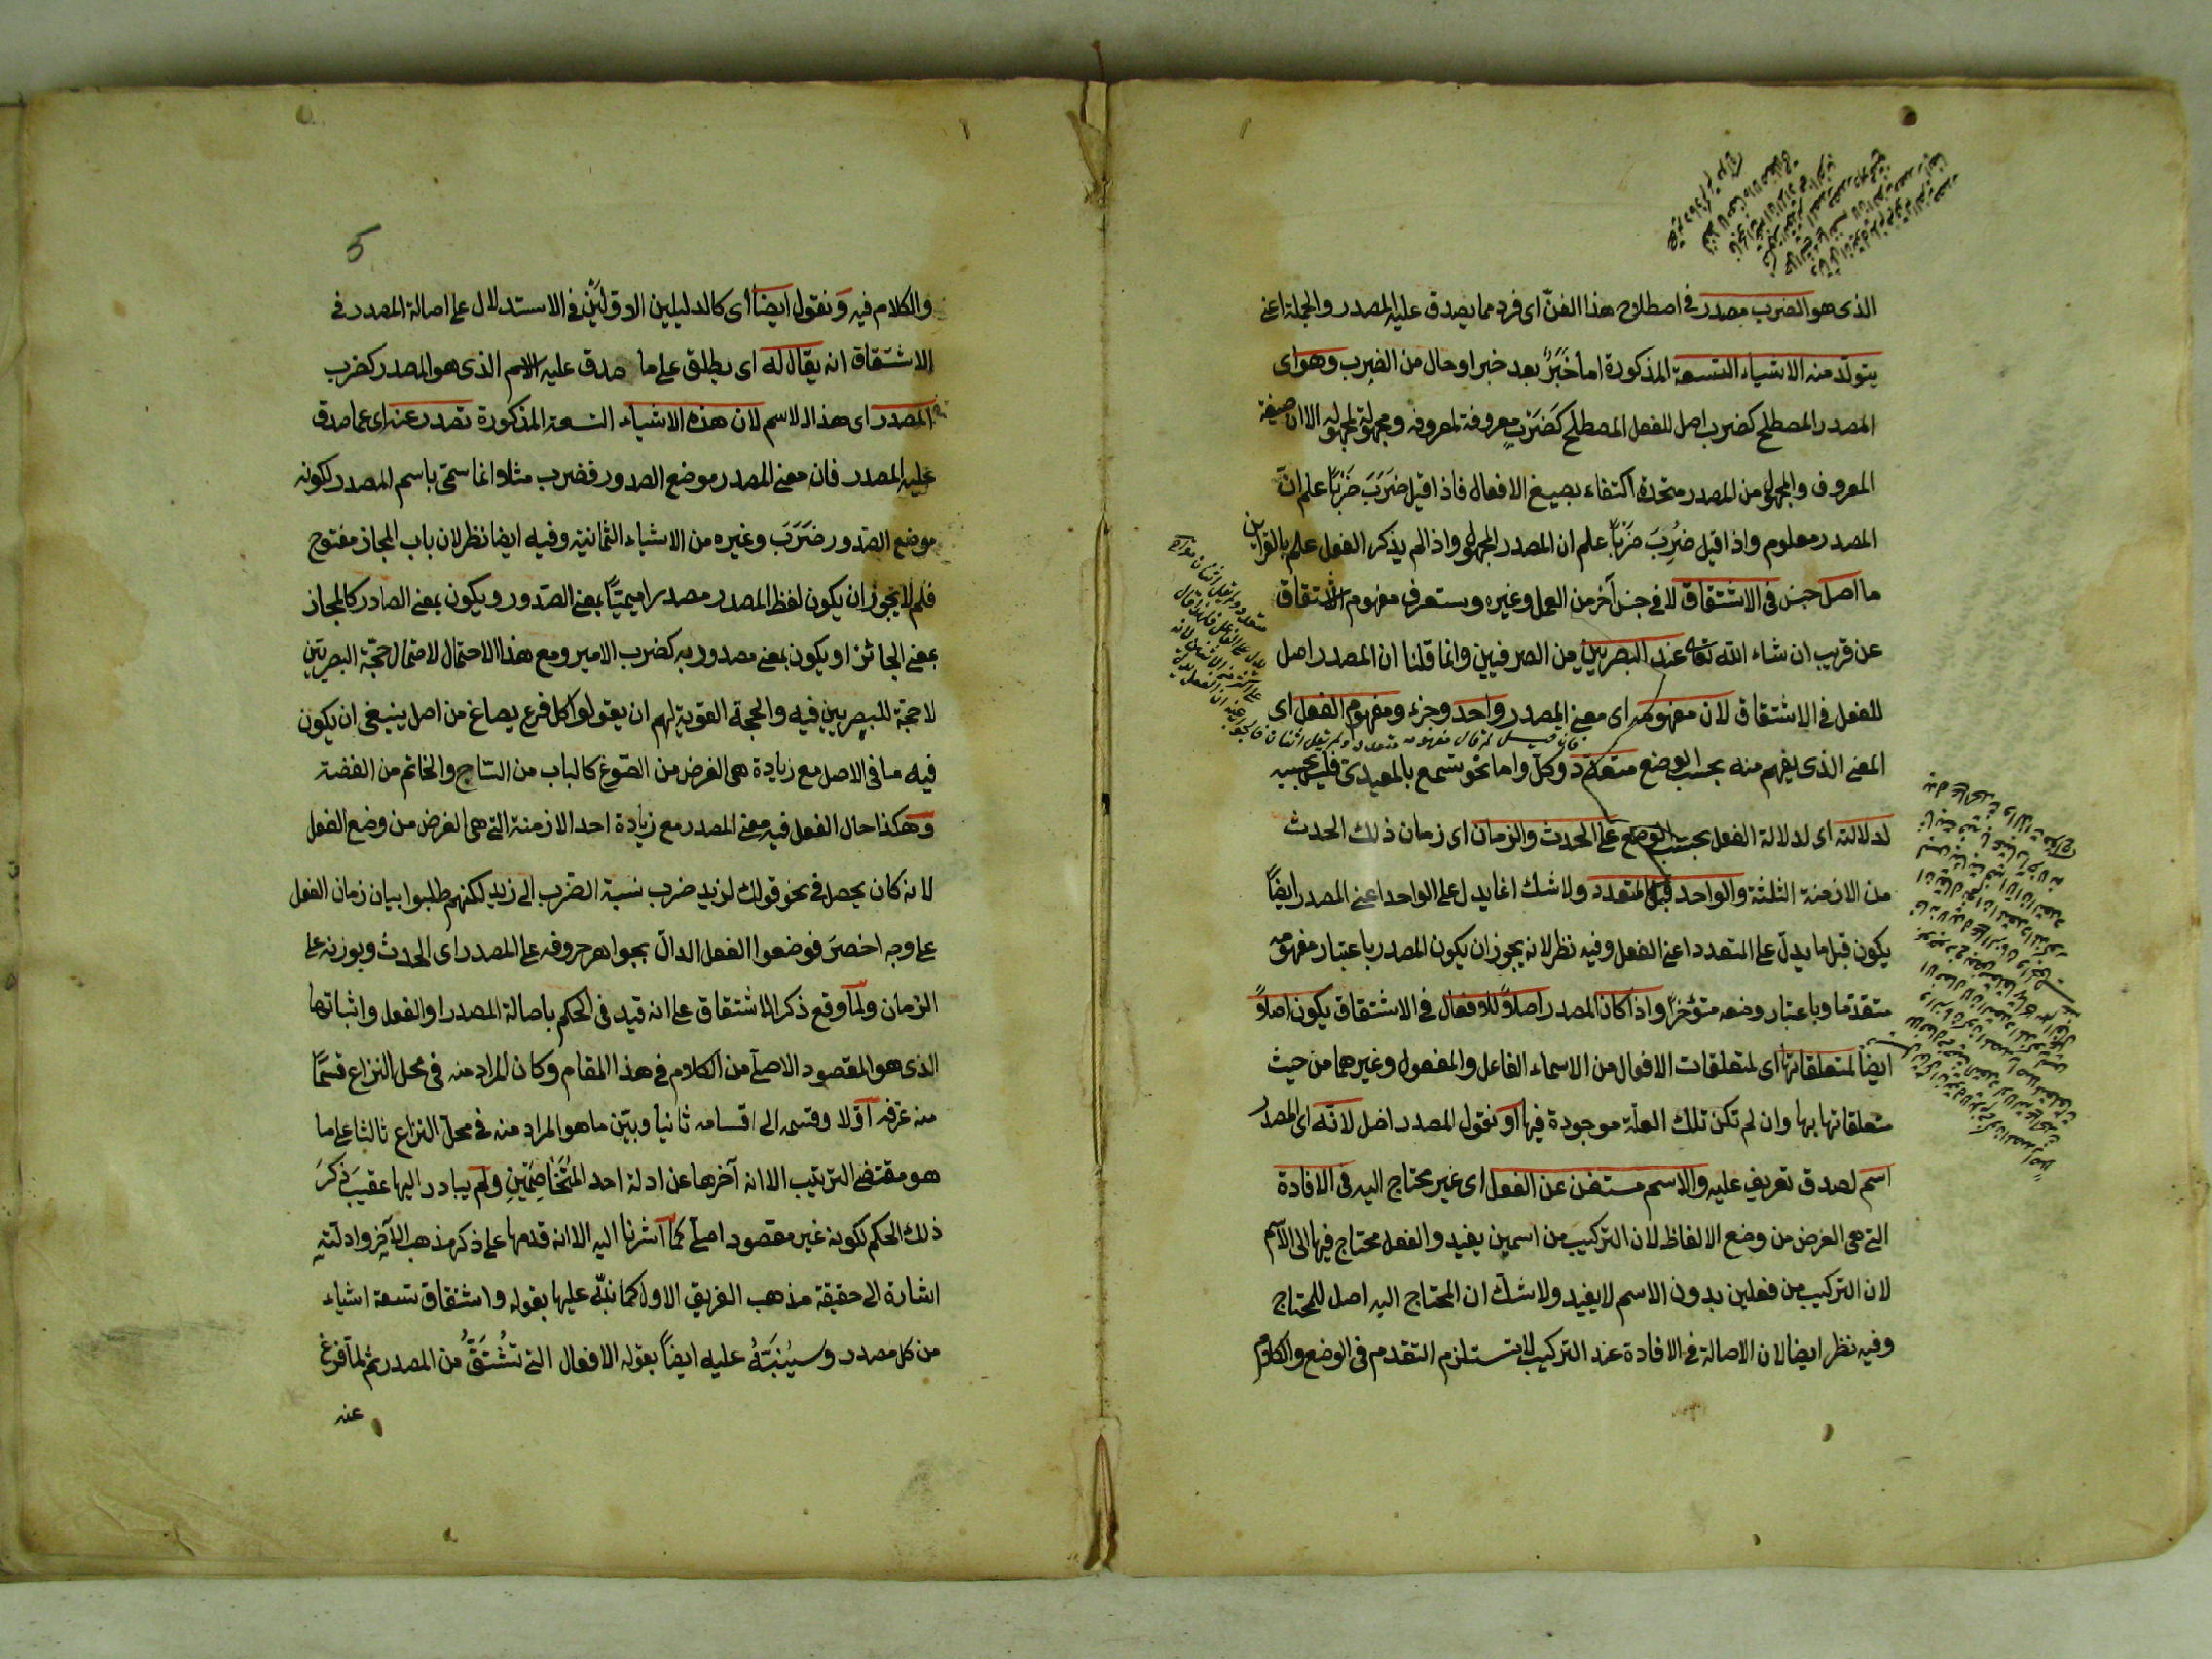 الذى هو الضرب مصدر فى اصطلاح هذا الفنّ اى فرد مما يصدق عليه المصدر والجملة اعنى
يتولد منه الاشياء التسعة المذكورة اما خَبَرٌ بعد خبر او حال من الضرب وهو اى
المصدر المصطلح كضرب اصل للفعل المصطلح كضَرَبَ معروفة لمعروفه ومجهولة لمجهوله الا ان صيغة
المعروف والمجهول من المصدر متحدة اكتفاء بصيغ الافعال فاذا قيل ضَرَبَ ضَرْباً علم انّ
المصدر معلوم واذا قيل ضُرِبَ ضَرْباً علم ان المصدر المجهول واذا لم يذكر الفعل علم بالقراين
ما اصل جنس فى الاشتقاق لا فى جنس آخر من العمل وغيره وستعرف مفهوم الاشتقاق
عن قريب ان شاء الله تعالى عند البصريين من الصرفيين وانما قلنا ان المصدر اصل
للفعل فى الاشتقاق لان مفهومه اى معنى المصدر واحد وجزء ومفهوم الفعل اى
المعنى الذى يفهم منه بحسب الوضع متعدد وكلّ واما نحو تسمع بالمعيدى فليس بحجيه
لدلالته اى لدلالة الفعل بحسب الوضع على الحدث والزمان اى زمان ذلك الحدث
من الازمنة الثلثة والواحد قبل المتعدد ولا شك انما يدل على الواحد اعنى المصدر ايضاً
يكون قبل ما يدلّ على المتعدد اعنى الفعل وفيه نظر لانه يجوز ان يكون المصدر باعتبار مفهومه
متقدما وباعتبار وضعه متؤخراً واذا كان المصدر اصلاً للافعال فى الاشتقاق يكون اصلاً
ايضاً لمتعلقاتها اى لمتعلقات الافعال من الاسماء الفاعل والمفعول وغيرهما من حيث
متعلقاتها بها وان لم تكن تلك العلّة موجودة فيها او نقول المصدر اصل لانّه اى المصدر
اسم لصدق تعريف عليه والاسم مستغن عن الفعل اى غير محتاج اليه فى الافادة
التى هى الغرض من وضع الالفاظ لان التركيب من اسمين يفيد والفعل محتاج فيها الى الاسم
لان التركيب من فعلين بدون الاسم لا يفيد ولا شكّ ان المحتاج اليه اصل للمحتاج
وفيه نظر ايضا لان الاصالة فى الافادة عند التركيب لا تستلزم التقدم فى الوضع والكلام
5
والكلام فيه ونقول ايضاً اى كالدليلين الاوّلَيْن فى الاستدلال على اصالة المصدر فى
الاشتقاق انه يقال له اى يطلق على ما صدق عليه الاسم الذى هو المصدر كضرب
المصدر اى هذا الاسم لان هذه الاشياء التسعة المذكورة تصدر عنه اى عما صدق
عليه المصدر فان معنى المصدر موضع الصدور فضرب مثلا وانما سمّى باسم المصدر لكونه
موضع الصّدور ضَرَبَ وغيره من الاشياء الثمانية وفيه ايضا نظر لان باب المجاز مفتوح
فلم لا يجوز ان يكون لفظ المصدر مصدرا ميميّاً بمعنى الصّدور ويكون بمعنى الصادر كالمجاز
بمعنى الجائز او يكون بمعنى مصدور به كضرب الامير ومع هذا الاحتمال لاحتمال حجّة البصريّين
لا حجّة للبصريين فيه والحجة القوية لهم ان يقولوا كل فرع يصاغ من اصل ينبغى ان يكون
فيه ما فى الاصل مع زيادة هى الغرض من الصّوغ كالباب من السّاج والخاتم من الفضة
وهكذا حال الفعل فيه معنى المصدر مع زيادة احد الازمنة التى هى الغرض من وضع الفعل
لانه كان يحصل فى نحو قولك لزيد ضرب نسبة الضّرب الى زيد لكنهم طلبوا بيان زمان الفعل
على وجه اخصر فوضعوا الفعل الدالّ بجواهر حروفه على المصدر اى الحدث وبوزنه على
الزمان ولمّا وقع ذكر الاشتقاق على انه قيد فى الحكم باصالة المصدر او الفعل واثباتها
الذى هو المقصود الاصلّى من الكلام فى هذا المقام وكان المراد منه فى محل النزاع قسمًا
منه عرّفه اوّلا وقسمه الى اقسامه ثانيا وبيّن ما هو المراد منه فى محلّ النزاع ثالثا على ما
هو مقتضى الترتيب الا انه آخرها عن ادلة احد المُتَخَاصِمَيْنِ ولم يبادر اليها عقيبَ ذكرَ
ذلك الحكم لكونه غير مقصود اصلّى كما اشرنا اليه الا انه قدمها على ذكر مذهب الآخر وادلّته
اشارة الى حقيقة مذهب الفريق الاول كما نبّه عليها بقوله واشتقاق تسعة اشياء
من كل مصدر وسيُنَبّهُ عليه ايضاً بقوله الافعال التى تُشْتَقُّ من المصدر ثم لمّا فرغ
عنه